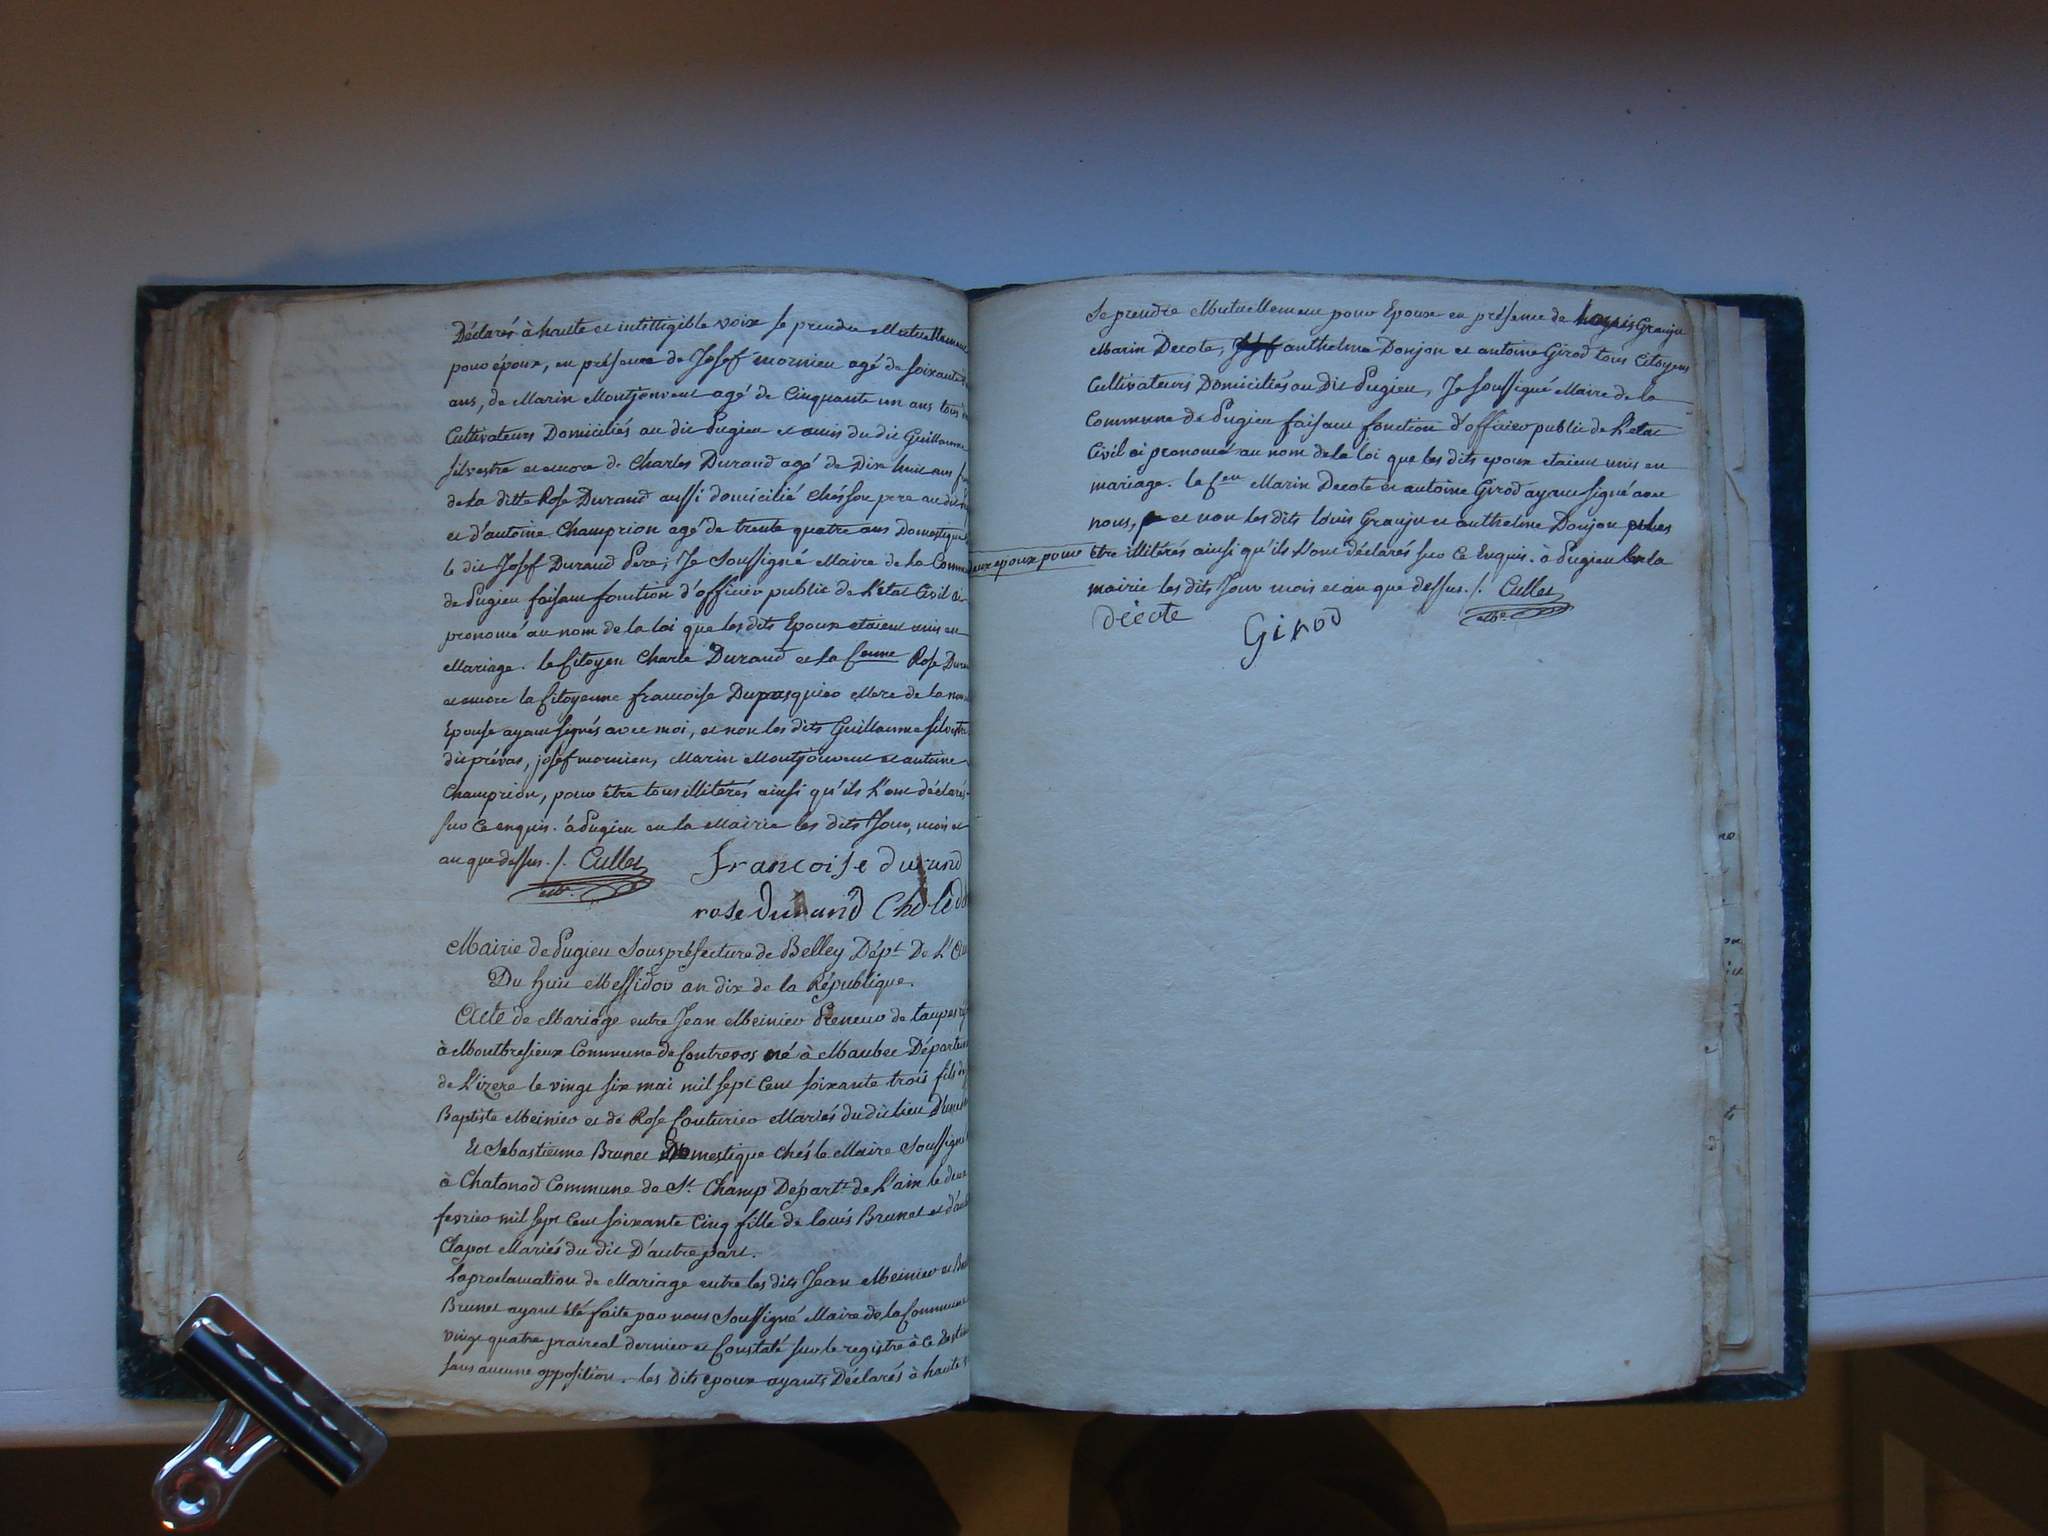 Déclarés à haute et intelligible voix se prendre Mutuellement
pour époux, en présence de Josef mornieu agé de soixante
ans, de Marin Montjouvent agé de Cinquante un ans tous
Cultivateurs Domiciliés au dit Pugieu et amis du dit Guillaume
silvestre et encore de Charles Durand agé de Dix huit ans
de la ditte Rose Durand aussi domicilié chés son pere au dit
et d'antoine Champrion agé de trente quatre ans Domestique
le dit Josef Durand Pere, Je Soussigné Maire de la Commune
de Pugieu faisant fonction d'officier public de L'etat Civil ai
pronomé au nom de la loi que les dits Epoux etaient unis en
Mariage. le Citoyen Charle Durand et la Rose Durand
et encore la Citoyenne francoise Dupasquier Mere de la
Epouse ayant signés avec moi, et non les dits Guillaume silvestre
dit prévas, josef mornieu, Marin Montjouvent et antoine
Champrion, pour être tous illitérés ainsi qu'ils L'ont déclarés
sur ce enquis. à Pugieu en la Mairie les dits Jour, mois et
an que dessus ./. Cullet
francoise durand
rose durand
Mairie de Pugieu Souspréfecture de Belley Dépt. De L'
Du huit Messidor an dix de la République.
Acte de Mariage entre Jean Meinier Preneur de taupes
à Montbresieux Commune de Contrevos né à Maubec Département
de L'izere le vingt six mai mil sept Cent soixante trois fils de
Baptiste Meinier et de Rose Couturier Mariés du dit lieu D'une
Et Sebastienne Brunet Domestique chés le Maire Soussigné
à Chatonod Commune de St. Champ Départ. de L'ain le
fevrier mil sept Cent soixante Cinq fille de louis Brunet et
Clapot Mariés du dit D'autre part.
La proclamation de Mariage entre les dits Jean Meinier et
Brunet ayant été faite par nous Soussigné Maire de la Commune
vingt quatre praireal dernier et Constaté sur le registre à ce
sans aucune opposition. les dits epoux ayants Déclarés à haute
Se prendre Mutuellement pour Epoux en présence de Louis Granju
Marin Decote, anthelme Donjon et antoine Girod tous Citoyens
Cultivateurs Domiciliés au Dit Pugieu, Je soussigné Maire de la
Commune de Pugieu faisant fonction d'officier public de L'etat
Civil ai pronomé au nom de la loi que les dits epoux etaient unis en
mariage. le Marin Decote et antoine Girod ayant signé avec
nous, et non les dits louis Granju et anthelme Donjon et les
epoux pour être illitérés ainsi qu'ils L'ont déclarés sur ce Enquis. à Pugieu en la
mairie les dits Jour mois et an que dessus ./. Cullet
Décote
Girod